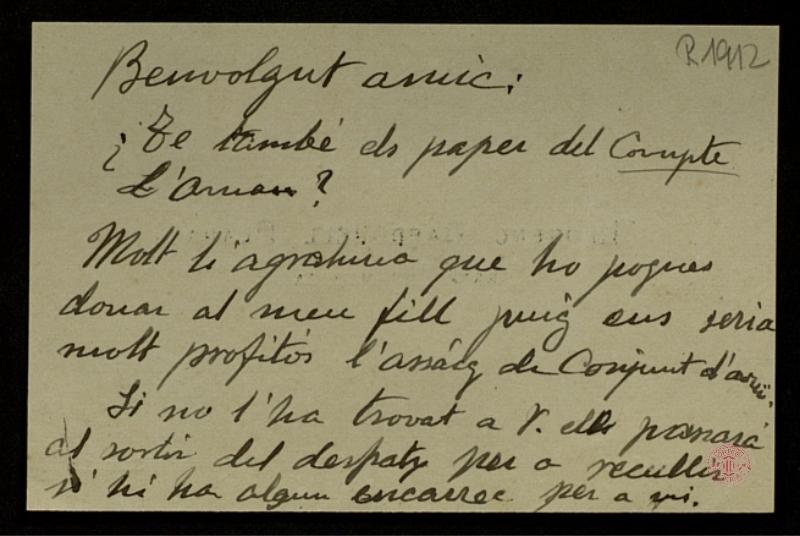 R.1912
Benvolgut amic:
¿Te també els paper del Compte
L'Arnau?
Molt li agrahiria que ho pogues
donar al meu fill puig ens seria
molt profitós l'assáig de Conjunt d'avui.
Si no l'ha trovat a V. ell passará
al sortir del despatx per a recullir
si hi ha algun encarrec per a mi.